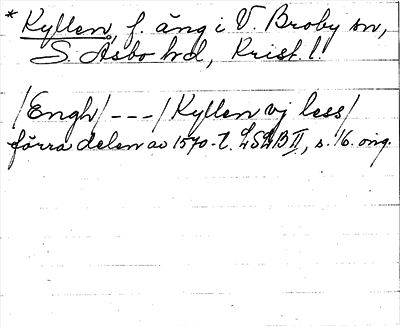 * Kyllen, f. äng i V. Broby sn,
S. Åsbo hd, Krist. l.
/Engh/ --- / Kyllen vj less/
förra delen av 1570-t. LSÄB II, s. 16. orig.